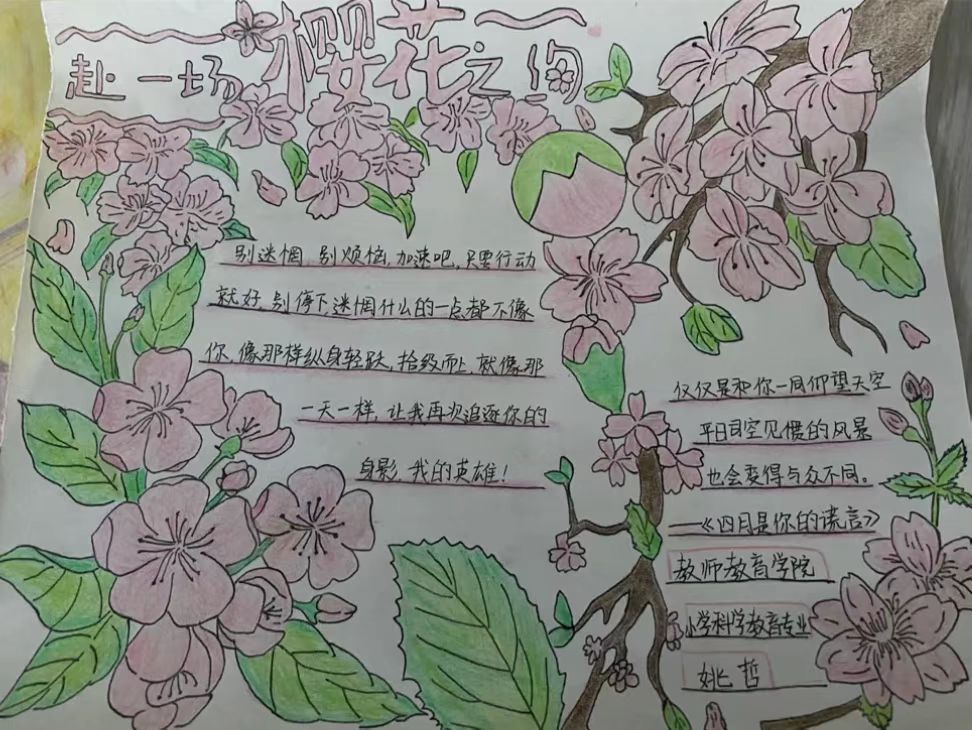 赴一场樱花之约
别迷惘,别烦恼,加速吧,只要行动
就好,别停下,迷惘什么的一点都不像
你,像那样纵身轻跃,拾级而上,就像那
一天一样,让我再次追逐你的
身影,我的英雄!
仅仅是和你一同仰望天空
平日司空见惯的风景
也会变得与众不同。
——《四月是你的谎言》
教师教育学院
小学科学教育专业
姚哲